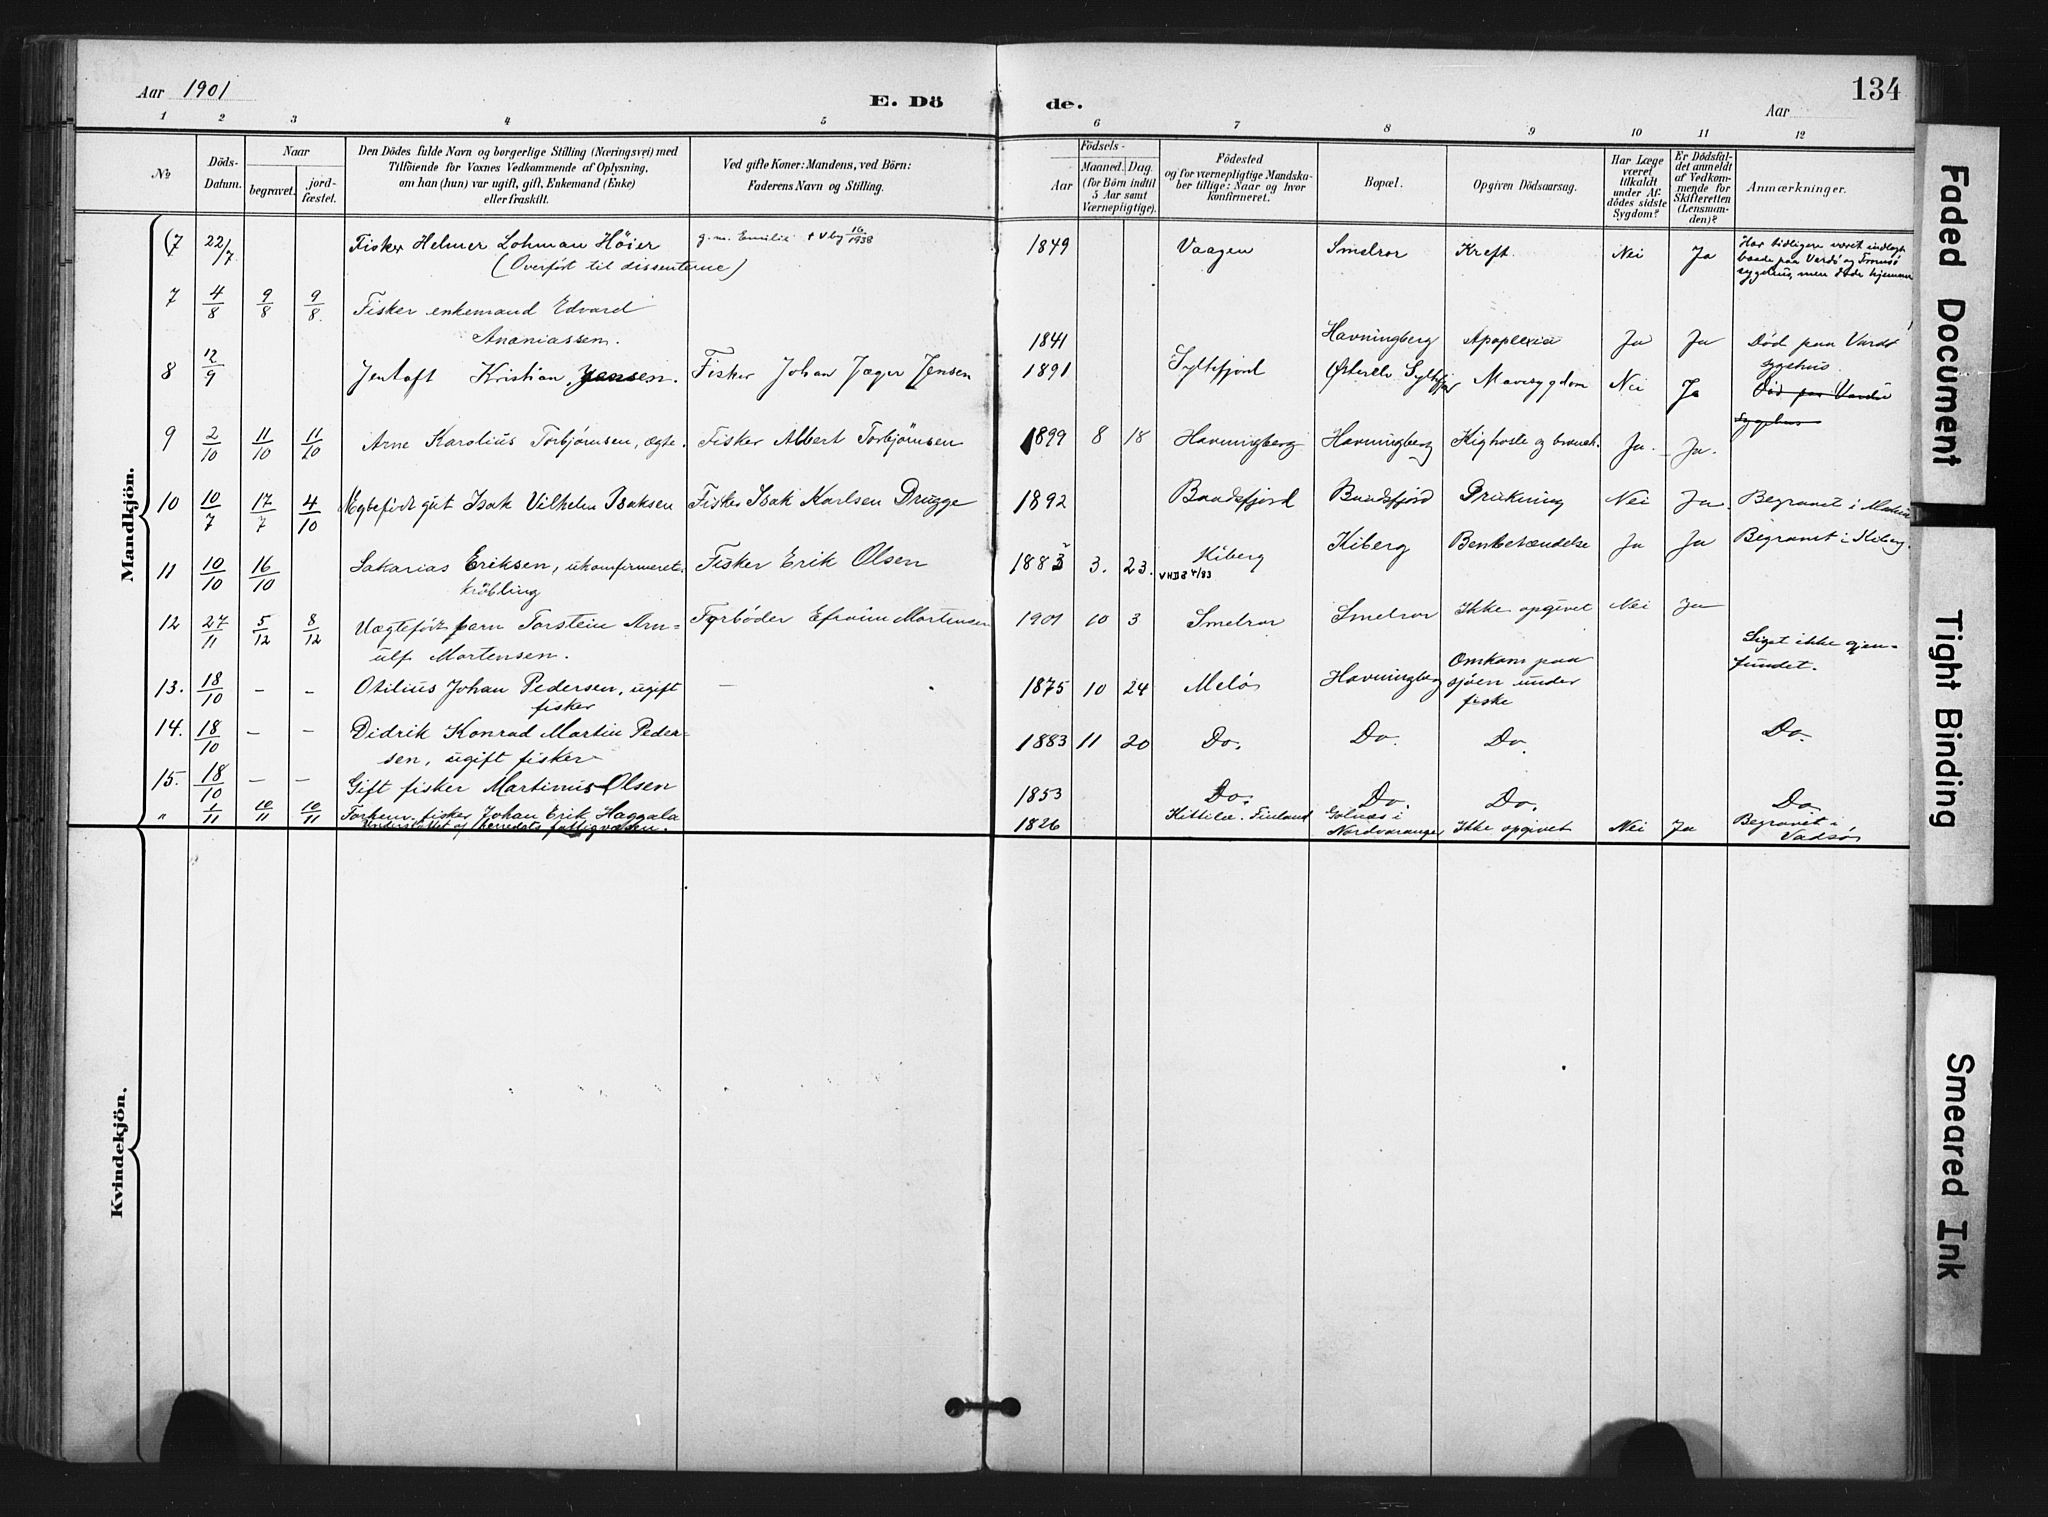 Aar 1901
E. Dö
de.
Aar
134
1 2 3 4 5 6 7 8 9 10 11 12
№
Döds-
Datum.
Naar
begravet.
jord-
fæstet.
Den Dödes fulde Navn og borgerlige Stilling (Næringsvei) med
Tilföiende for Voxnes Vedkommende af Oplysning,
om han (hun) var ugift, gift, Enkemand (Enke)
eller fraskilt.
Ved gifte Koner: Mandens, ved Börn:
Faderens Navn og Stilling.
Födsels-
Aar
Maaned. Dag.
(for Börn indtil
5 Aar samt
Værnepligtige).
Födested
og for værnepligtige Mandska-
ber tillige: Naar og hvor
konfirmeret.
Bopæl.
Opgiven Dödsaarsag.
Har Læge
været
tilkaldt
under Af-
dödes sidste
Sygdom?
Er Dödsfal-
det anmeldt
af Vedkom-
mende for
Skifteretten
(Lensman-
den)?
Anmærkninger.
Mandkjön.
(7 22/7 Fisker Helmer Lohman Höier g. m. Emilie 1849 Vaagen Smelror Kreft. Nei Ja Har tidligere været indlagt
(Overført til dissenterne) baade paa Vardö og Tromsö
sygehus, men döde hjemme
7 4/8 9/8 9/8. Fisker enkemand Edvard
Ananiassen. 1841 Havningberg Apoplexia Ja Ja Död paa Vardö
sygehus.
8 12/9 Jentoft Kristian Jensen. Fisker Johan Jæger Jensen 1891 Syltefjord Østerelv Syltefj. Mavesygdom Nei Ja Död paa Vardö
Sygehus
9 2/10 11/10 11/10 Arne Karolius Torbjörnsen, ægte. Fisker Albert Torbjörnsen 1899 8 18 Havningberg Havningberg Kighoste og bronch. Ja. Ja.
10 10/7 17/7 4/10 Ægtefödt gut Isak Vilhelm Isaksen Fisker Isak Karlsen Drugge 1892 Baadsfjord Baadsfjord Drukning Nei Ja. Begravet i Makur
11 10/10 16/10 Sakarias Eriksen, ukonfirmeret Fisker Erik Olsen 1883 3. 23. Kiberg Kiberg Benbetændelse Ja Ja Begravet i Kiberg.
kröbling
12 27/11 5/12 8/12 Uægtefödt barn Torstein Arn- Forböder Efraim Mortensen 1901 10 3 Smelror Smelror Ikke opgivet Nei Ja
ulf Mortensen.
13. 18/10 – – Otilius Johan Pedersen, ugift – 1875 10 24 Melö Havningberg Omkom paa Liget ikke gjen-
fisker sjöen under fundet.
fiske
14. 18/10 – – Didrik Konrad Martin Peder- 1883 11 20 Do. Do. Do. Do.
sen, ugift fisker
15. 18/10 – – Gift fisker Martinus Olsen 1853 Do. Do. Do. Do.
" 1/11 10/11 10/11 Forhenv. fisker Johan Erik Haggala 1826 Kittilä. Finland Golnæs i Ikke opgivet Nei Ja Begravet i
Understöttet af herredets fattigvæsen. Nordvaranger Vadsö
Kvindekjön.
Faded Document
Tight Binding
Smeared Ink